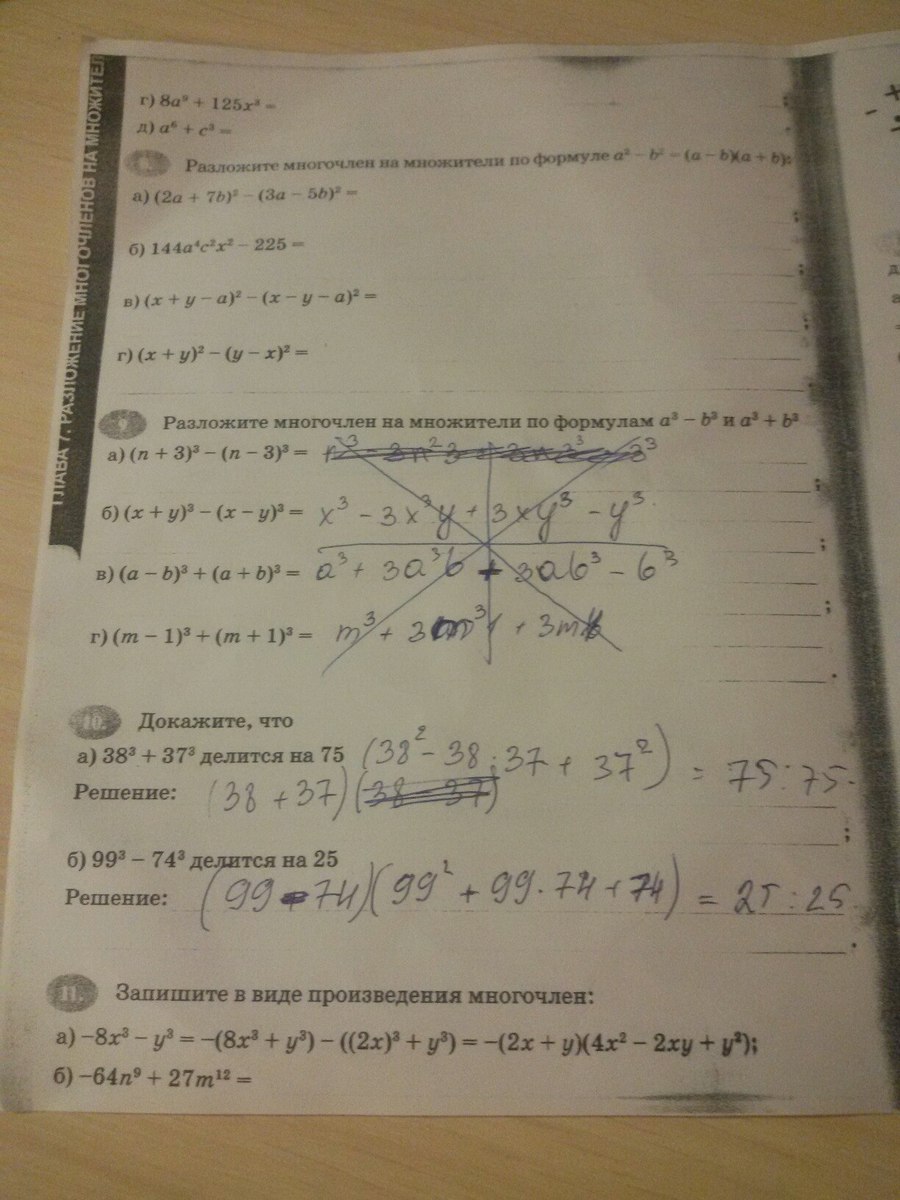 ГЛАВА 7. РАЗЛОЖЕНИЕ МНОГОЧЛЕНОВ НА МНОЖИТЕЛ
г) 8a⁹ + 125x³ = ;
д) a⁶ + c³ = .
Разложите многочлен на множители по формуле a² – b² = (a – b)(a + b):
а) (2a + 7b)² – (3a – 5b)² = ;
б) 144a⁴c²x² – 225 = ;
в) (x + y – a)² – (x – y – a)² = ;
г) (x + y)² – (y – x)² = .
9. Разложите многочлен на множители по формулам a³ – b³ и a³ + b³
а) (n + 3)³ – (n – 3)³ = ;
б) (x + y)³ – (x – y)³ = x³ - 3x³y + 3xy³ - y³ ;
в) (a – b)³ + (a + b)³ = a³ + 3a³b + 3ab³ - b³ ;
г) (m – 1)³ + (m + 1)³ = m³ + 3m³1 + 3m .
10. Докажите, что
а) 38³ + 37³ делится на 75 (38² - 38 · 37 + 37²) = 75 : 75.
Решение: (38 + 37) (38 - 37) ;
б) 99³ – 74³ делится на 25
Решение: (99 - 74)(99² + 99 · 74 + 74) = 25 : 25 .
11. Запишите в виде произведения многочлен:
а) –8x³ – y³ = –(8x³ + y³) – ((2x)³ + y³) = –(2x + y)(4x² – 2xy + y²);
б) –64n⁹ + 27m¹² =